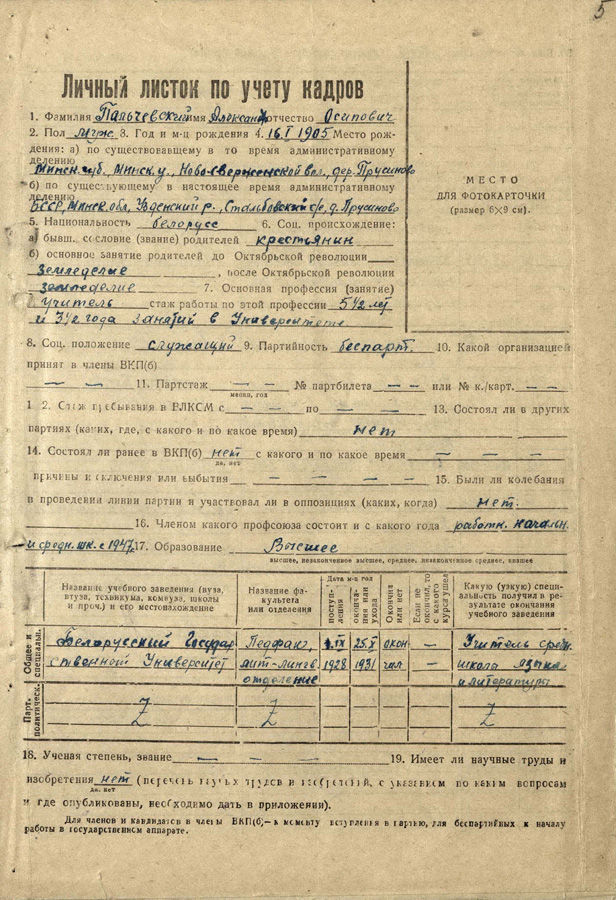 5
Личный листок по учету кадров
1. Фамилия Пальчевский имя Александр отчество Осипович
2. Пол муж. 3. Год и м-ц рождения 4. 16.I 1905 Место рож-
дения: а) по существовавшему в то время административному
делению
Минск. губ., Минск. у., Ново-Сверженской вол., дер. Прусиново
б) по существующему в настоящее время административному
делению
БССР, Минск. обл., Узденский р., Стальбовский с/с, д. Прусиново
5. Национальность белорусс 6. Соц. происхождение:
а) бывш. сословие (звание) родителей крестьянин
б) основное занятие родителей до Октябрьской революции
земледелие, после Октябрьской революции
земледелие 7. Основная профессия (занятие)
учитель стаж работы по этой профессии 5 1/2 лет
и 3 1/2 года занятий в Университете
МЕСТО
ДЛЯ ФОТОКАРТОЧКИ
(размер 6×9 см).
8. Соц. положение служащий 9. Партийность беспарт. 10. Какой организацией
принят в члены ВКП(б)
— — 11. Партстаж — — — № партбилета — — или № к./карт. — —
месяц, год
12. Стаж пребывания в ВЛКСМ с — — по — — 13. Состоял ли в других
партиях (каких, где, с какого и по какое время) нет
14. Состоял ли ранее в ВКП(б) нет с какого и по какое время — — —
да, нет
причины исключения или выбытия — — — — 15. Были ли колебания
в проведении линии партии и участвовал ли в оппозициях (каких, когда) нет.
16. Членом какого профсоюза состоит и с какого года работн. начальн.
и средн. шк. с 1947 17. Образование Высшее
высшее, незаконченное высшее, среднее, незаконченное среднее, низшее
Название учебного заведения (вуза, втуза, техникума, комвуза, школы и проч.) и его местонахождение
Название факультета или отделения
Дата м-ц год
поступления
окончания или ухода
Окончил или нет
Если не окончил, то с какого курса ушел
Какую (узкую) специальность получил в результате окончания учебного заведения
Общее и специальн.
Белорусский Государ
ственный Университет
Педфак,
лит-лингв.
отделение
1.IX
1928
25.X
1931
окон
чил
—
Учитель средн.
школа языка
и литературы
Парт.-политическ.
Z Z Z
18. Ученая степень, звание — — — 19. Имеет ли научные труды и
изобретения нет (перечень научных трудов и изобретений, с указанием по каким вопросам
да, нет
и где опубликованы, необходимо дать в приложении).
Для членов и кандидатов в члены ВКП(б)—к моменту вступления в партию, для беспартийных к началу
работы в государственном аппарате.